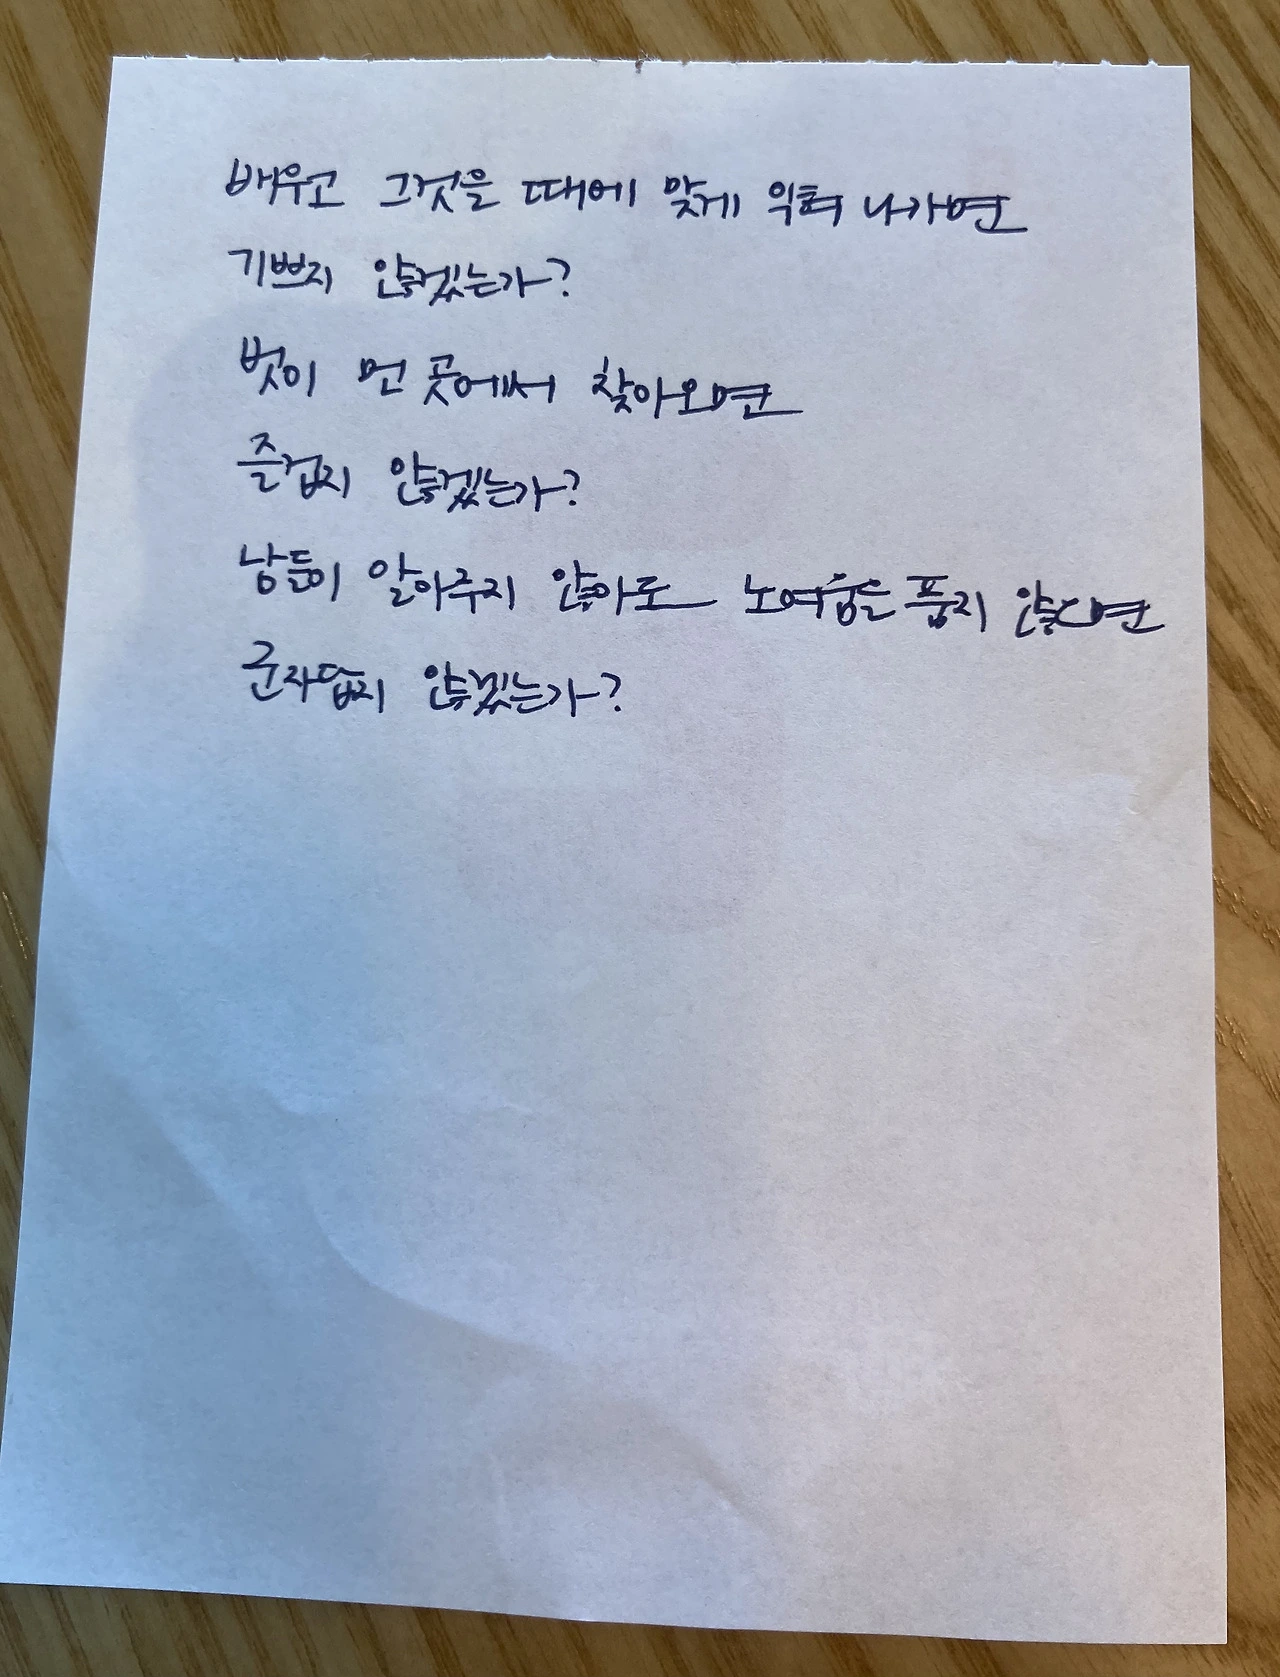 배우고 그것을 때에 맞게 익혀 나가면
기쁘지 않겠는가?
벗이 먼 곳에서 찾아오면
즐겁지 않겠는가?
남들이 알아주지 않아도 노여움을 품지 않는다면
군자답지 않겠는가?